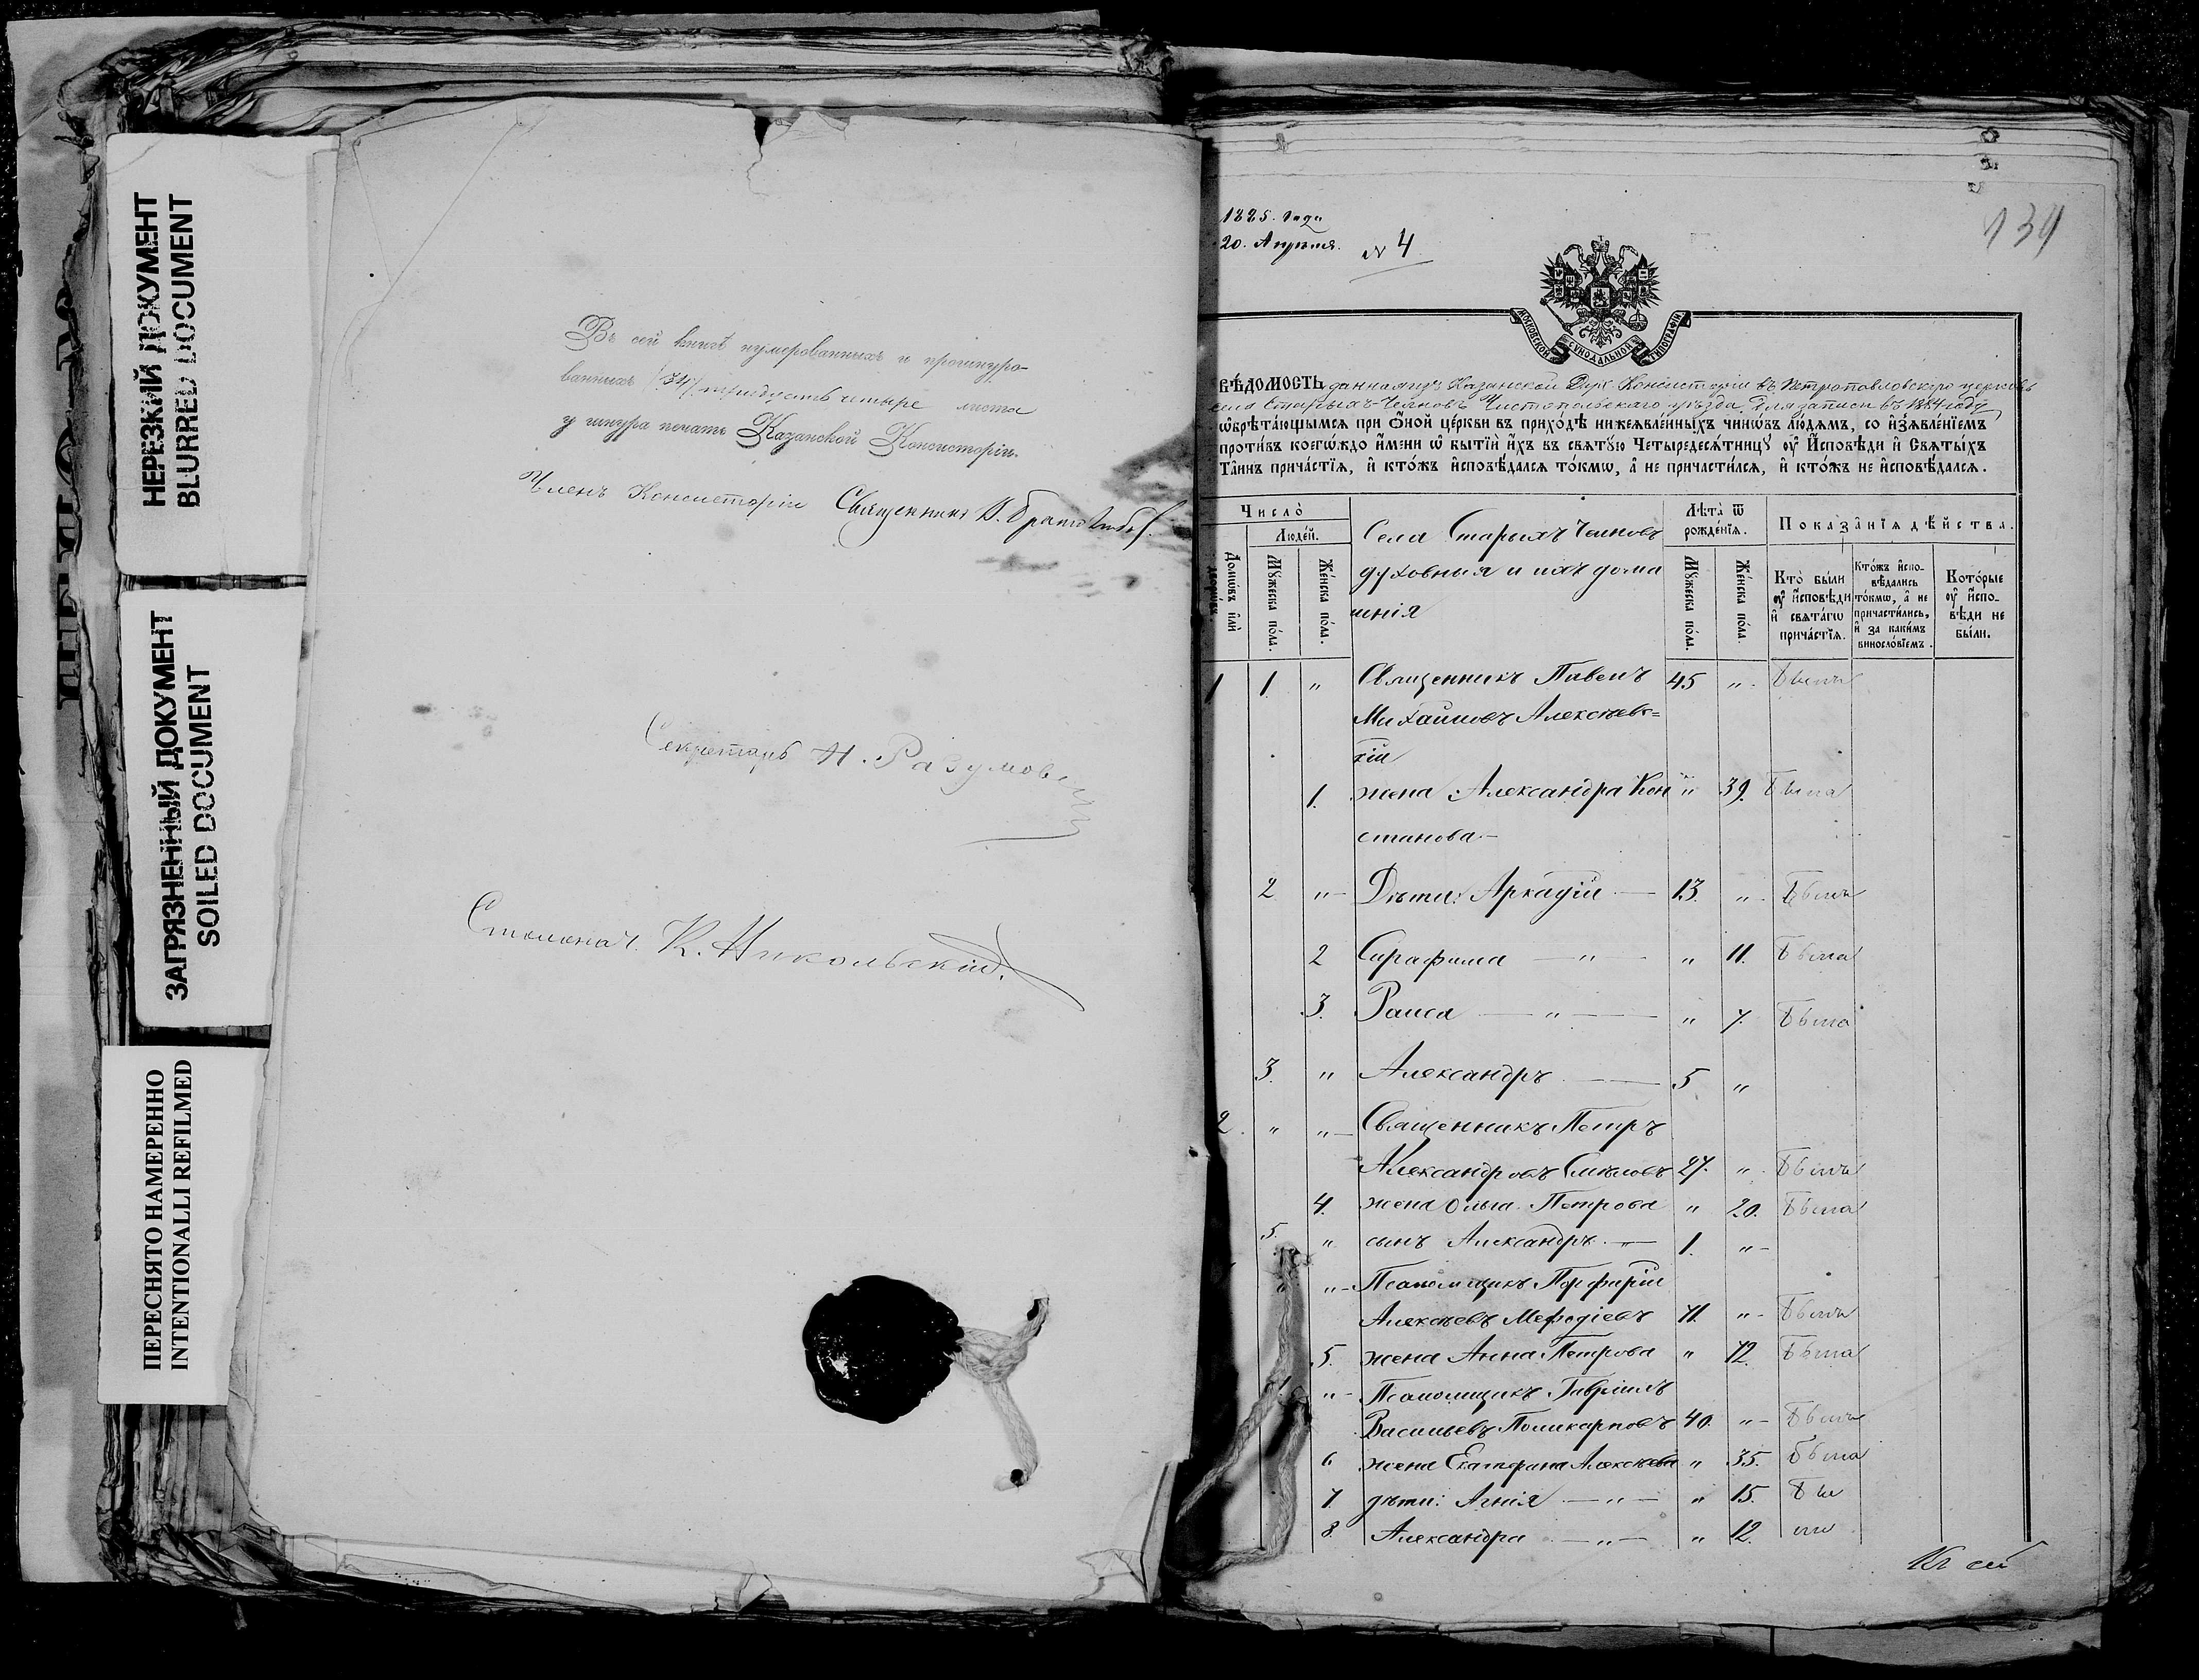 НЕРЕЗКИЙ ДОКУМЕНТ
BLURRED DOCUMENT
ЗАГРЯЗНЕННЫЙ ДОКУМЕНТ
SOILED DOCUMENT
ПЕРЕСНЯТО НАМЕРЕННО
INTENTIONALLI REFILMED
Въ сей книгѣ нумерованныхъ и прошнуро-
ванныхъ /34/ тридцать четыре листа
у шнура печать Казанской Консисторіи.
Членъ Консисторіи Священникъ
Секретарь Н. Разумовскій
Столонач. К. Никольскій.
1885. года
20. Апрѣля. № 4
139
МОСКОВСКОЙ СУНОДАЛЬНОЙ ТИПОГРАФІИ
ВѢ́ДОМОСТЬ данная изъ Казанской Дух. Консисторіи въ Петропавловскую церковь
села Старыхъ-Челновъ Чистопольскаго уѣзда. Для записи въ 1884 году
ѡ҆брѣта́ющымсѧ при ѻ҆́ной це́ркви въ прихо́дѣ нижеѧвле́нныхъ чинѡ́въ лю́демъ, со и҆з̾ѧвле́нїемъ
про́тивъ коегѡ́ждо и҆́мени ѡ҆ бытїѝ и҆́хъ въ свѧтꙋ́ю Четыредесѧ́тницꙋ оу҆ И҆́сповѣди и҆ Свѧты́хъ
Та̑инъ прича́стїѧ, и҆ кто́жъ и҆сповѣ́далсѧ то́кмѡ, а҆ не причасти́лсѧ, и҆ кто́жъ не и҆сповѣ́далсѧ.
Число̀
Люде́й.
Домѡ́въ и҆лѝ дворѡ́въ.
Мꙋ́жеска по́ла.
Же́нска по́ла.
Села Старыхъ Челновъ
духовныя и ихъ дома
шнія
Лѣ́та ѿ рожде́нїѧ.
Мꙋ́жеска по́ла.
Же́нска по́ла.
Показа̑нїѧ дѣ́йства.
Кто̀ бы́ли оу҆ и҆́сповѣди и҆ свѧта́гѡ прича́стїѧ.
Кто́жъ и҆спо-вѣ́дались то́кмѡ, а҆ не причасти́лись, и҆ за каки́мъ виносло́вїемъ.
Кото́рые оу҆ и҆́спо-вѣди не бы́ли.
1 1 " Священникъ Павелъ 45 " Былъ
Михайловъ Алексѣевс=
кій
1. жена Александра Кон " 39. Была
станова -
2 " Дѣти: Аркадій — 13. " Былъ
2 Серафима — " — " 11. Была
3. Раиса — " — " 7. Была
3. " Александръ — 5 "
2. " " Священникъ Петръ
Александровъ Смѣловъ 27. " Былъ
4. жена Ольга Петрова " 20. Была
5. " сынъ Александръ — 1. " -
" " - Псаломщикъ Порфирій
Алексѣевъ Мефодіевъ 71. " - Былъ
5. жена Анна Петрова " 72. Была
" - Псаломщикъ Гавріилъ
Васильевъ Поликарповъ 40. " - Былъ
6 жена Екатерина Алексѣева " 35. Была
7. дѣти: Агнія — " — " 15. Бы
8. Александра — " — " 12. ли
Къ сей